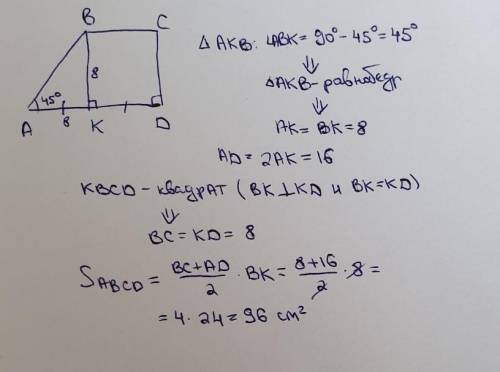 B C
8
45°
A 8 K D
Δ AKB: ∠ABK = 90° - 45° = 45°
⇓
ΔAKB - равнобедр
⇓
AK = BK = 8
AD = 2AK = 16
KBCD - квадрат (BK ⊥ KD и BK = KD)
⇓
BC = KD = 8
S_ABCD = (BC + AD)/2 · BK = (8 + 16)/2 · 8 =
= 4 · 24 = 96 cm²